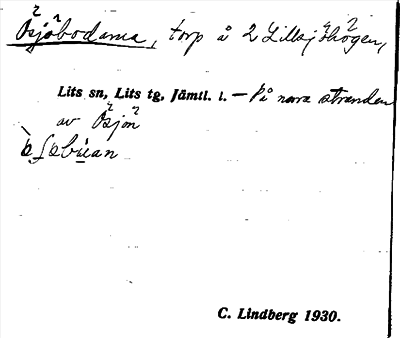 Ösjöbodarna, torp å 2 Lillsjöhögen,
Lits sn, Lits tg, Jämtl. l. – På norra stranden
av Ösjön
C. Lindberg 1930.